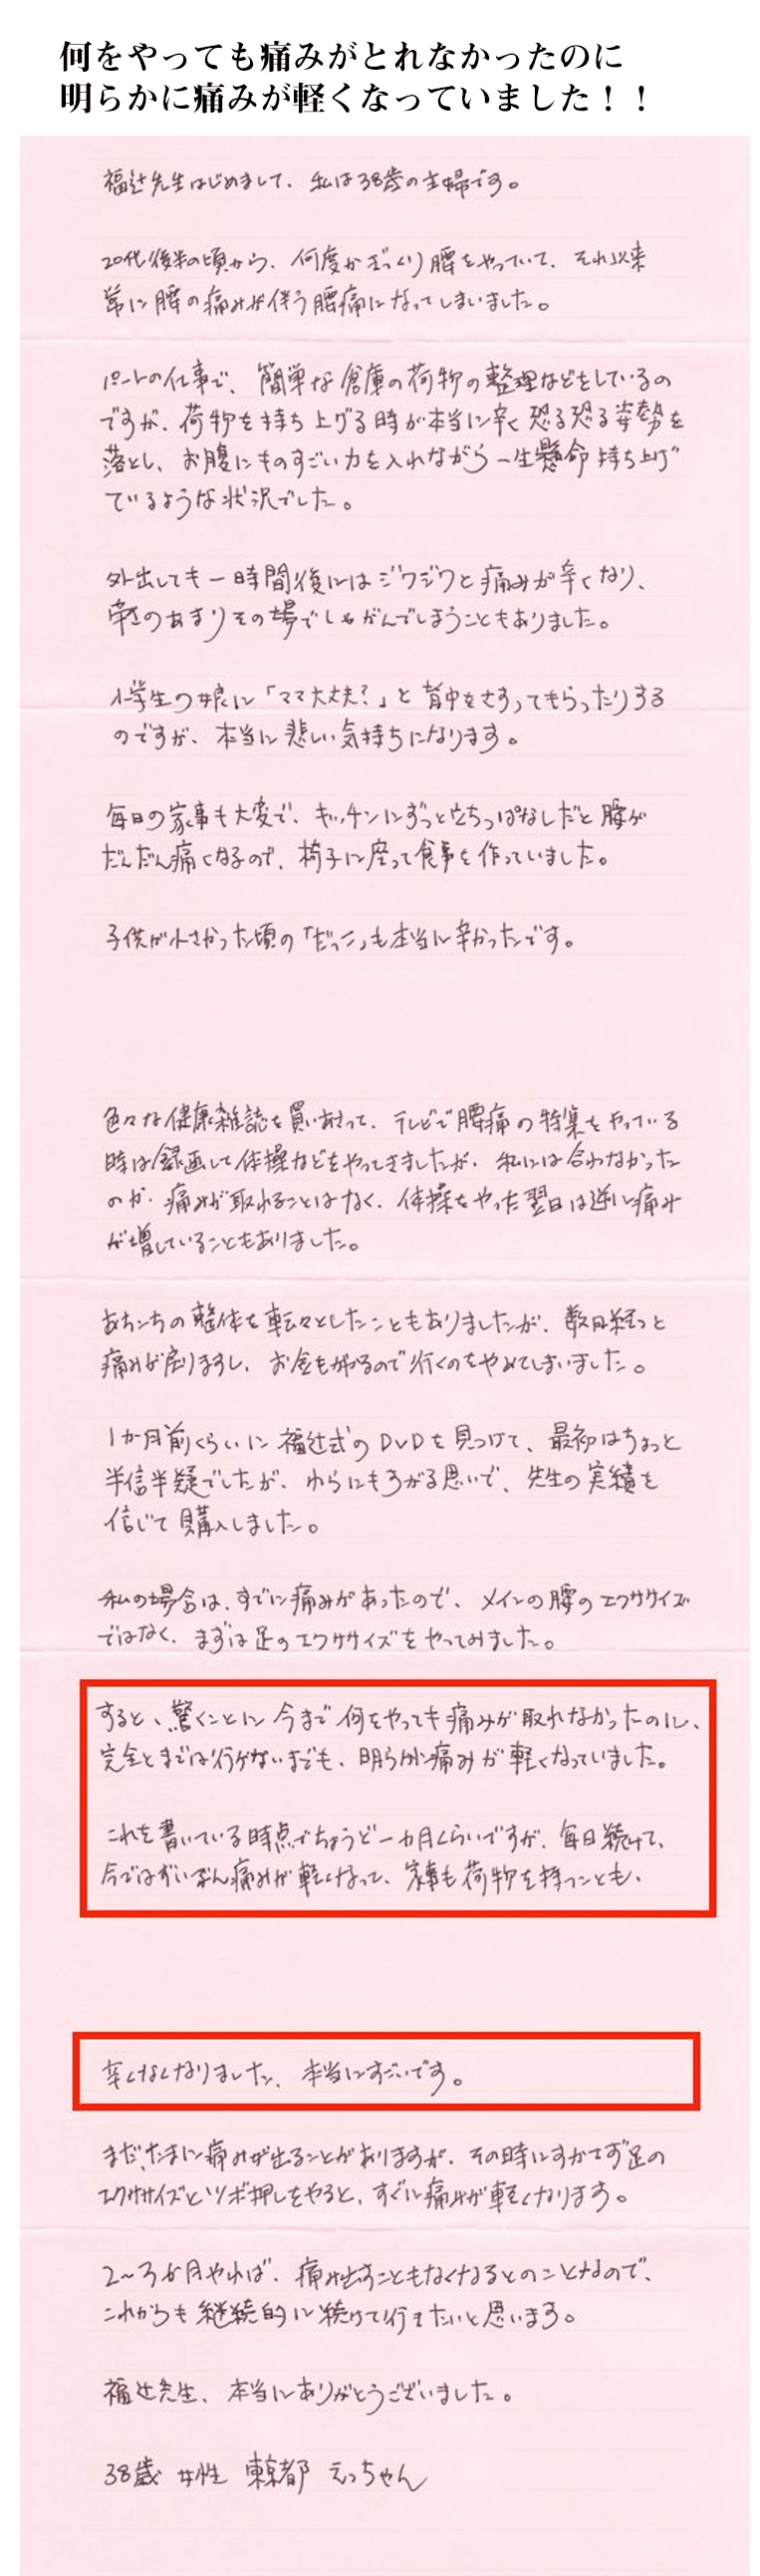 何をやっても痛みがとれなかったのに
明らかに痛みが軽くなっていました！！
福辻先生はじめまして、私は38歳の主婦です。
20代後半の頃から、何度かぎっくり腰をやっていて、それ以来
常に腰の痛みが伴う腰痛になってしまいました。
パートの仕事で、簡単な倉庫の荷物の整理などをしているの
ですが、荷物を持ち上げる時が本当に辛く恐る恐る姿勢を
落とし、お腹にものすごい力を入れながら一生懸命持ち上げ
ているような状況でした。
外出しても一時間後にはジワジワと痛みが辛くなり、
辛さのあまりその場でしゃがんでしまうこともありました。
小学生の娘に「ママ大丈夫?」と背中をさすってもらったりする
のですが、本当に悲しい気持ちになります。
毎日の家事も大変で、キッチンにずっと立ちっぱなしだと腰が
だんだん痛くなるので、椅子に座って食事を作っていました。
子供が小さかった頃の「だっこ」も本当に辛かったです。
色々な健康雑誌を買いあさって、テレビで腰痛の特集をやっている
時は録画して体操などをやってきましたが、私には合わなかった
のか、痛みが取れることはなく、体操をやった翌日は逆に痛み
が増していることもありました。
あちこちの整体を転々としたこともありましたが、数日経つと
痛みが戻りますし、お金もかかるので行くのをやめてしまいました。
1か月前くらいに福辻式のDVDを見つけて、最初はちょっと
半信半疑でしたが、わらにもすがる思いで、先生の実績を
信じて購入しました。
私の場合は、すでに痛みがあったので、メインの腰のエクササイズ
ではなく、まずは足のエクササイズをやってみました。
すると、驚くことに今まで何をやっても痛みが取れなかったのに、
完全とまでは行かないまでも、明らかに痛みが軽くなっていました。
これを書いている時点でちょうど一カ月くらいですが、毎日続けて、
今ではずいぶん痛みが軽くなって、家事も荷物を持つことも、
辛くなくなりました、本当にすごいです。
まだ、たまに痛みが出ることがありますが、その時にすかさず足の
エクササイズとツボ押しをやると、すぐに痛みが軽くなります。
2～3か月やれば、痛み出すこともなくなるとのことなので、
これからも継続的に続けて行きたいと思います。
福辻先生、本当にありがとうございました。
38歳 女性 東京都 えっちゃん